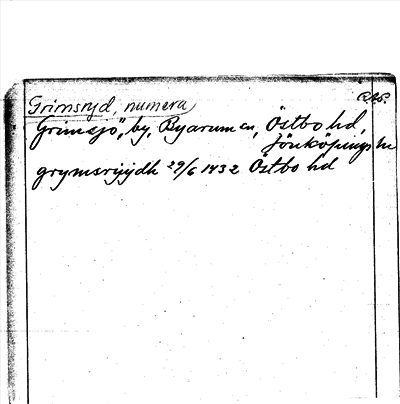 Grimsryd, numera
"Grimsjö", by, Byarum sn, Östbo hd,
Jönköpings län
grymsryydh 29/6 1432 Östbo hd